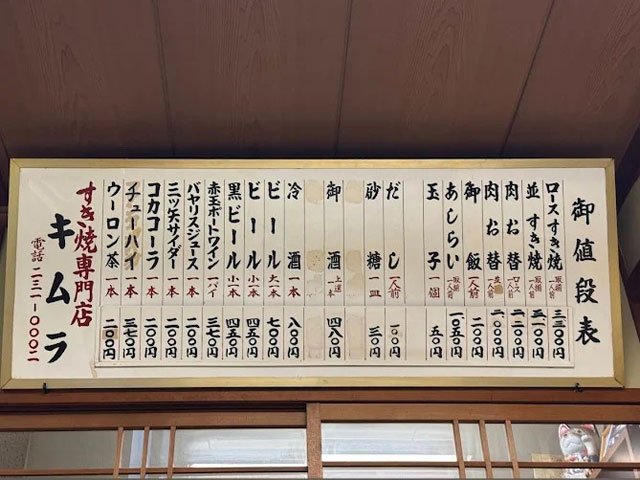 御値段表
ロースすき焼 取揃一人前 三三〇〇円
並すき焼 取揃一人前 三一〇〇円
肉お替 ロース一人前 二二〇〇円
肉お替 並一人前 二〇〇〇円
御飯 一人前 二〇〇円
あしらい 取揃一人前 一〇五〇円
玉子 一個 五〇円
だし 一人前 一〇〇円
砂糖 一皿 三〇円
御酒 上選一本 四八〇円
冷酒 一本 八〇〇円
ビール 大一本 七〇〇円
ビール 小一本 四五〇円
黒ビール 小一本 四五〇円
赤玉ポートワイン 一パイ 三七〇円
バヤリスジュース 一本 二〇〇円
三ツ矢サイダー 一本 二〇〇円
コカコーラ 一本 二〇〇円
チューハイ 一本 三七〇円
ウーロン茶 一本 二〇〇円
すき焼専門店
キムラ
電話 二三一-〇〇〇二